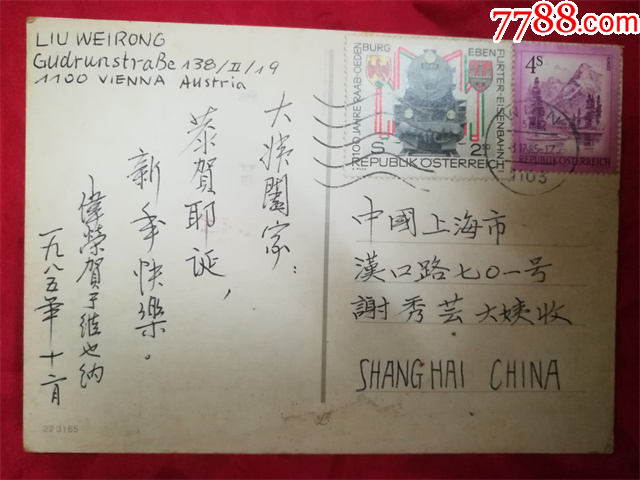 7788.com
LIU WEIRONG
Gudrunstraße 138/II/19
1100 VIENNA Austria
大姨闔家：
恭賀耶诞，
新年快樂。
偉榮賀于維也纳
一九八五年十二月
100 JAHRE RAAB-OEDENBURG EBENFURTER-EISENBAHN
S 2.50
REPUBLIK ÖSTERREICH
4S
REPUBLIK ÖSTERREICH
1103
中國上海市
漢口路七〇一号
謝秀芸大姨收
SHANGHAI CHINA
22 3165